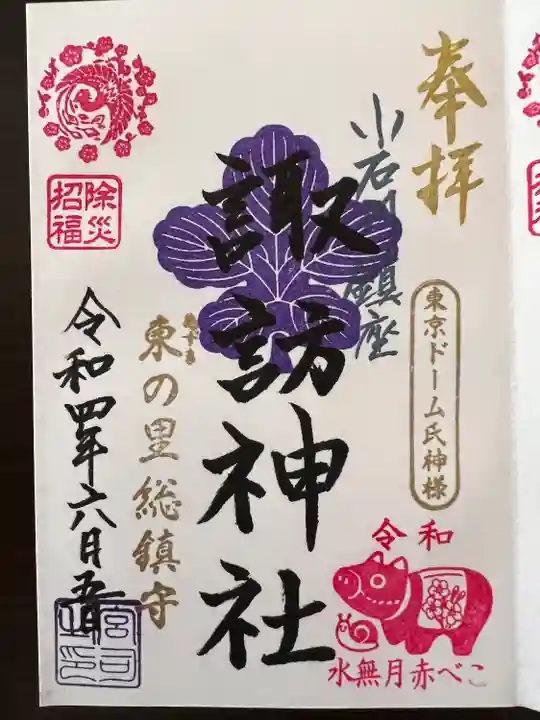 奉拝
小石川鎮座
東京ドーム氏神様
諏訪神社
東の里総鎮守
除災
招福
令和四年六月五日
令和
水無月赤べこ
宮司
之印